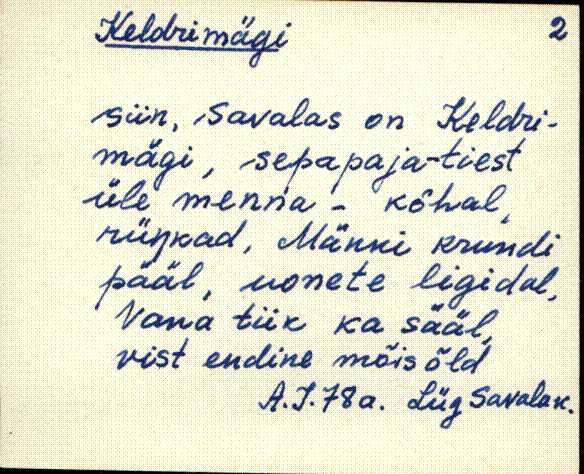 Keldrimägi 2
siin, Savalas on Keldri-
mägi, sepapaja-tiest
üle menna - kõhal,
rünkad, Männi krundi
pääl, uonete ligidal,
Vana tiik ka sääl,
vist endine mõis õld
A.J. 78a. Lüg Savala k.